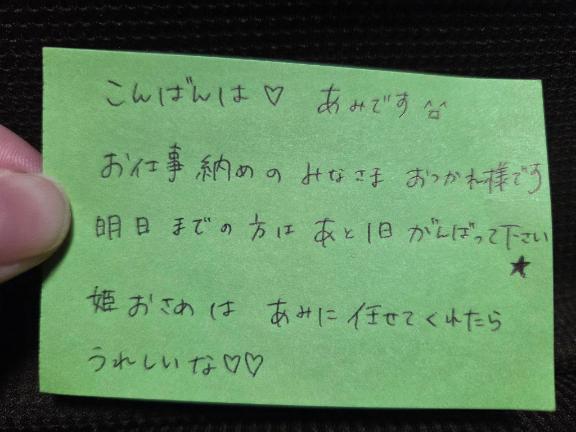 こんばんは♡ あみです ^^
お仕事納めの みなさま おつかれ様です
明日までの方は あと1日 がんばって下さい
★
姫おさめは あみに任せてくれたら
うれしいな♡♡